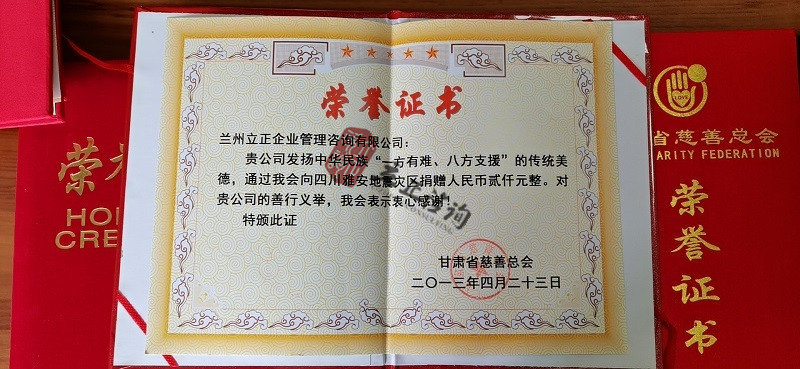 荣誉证书
兰州立正企业管理咨询有限公司：
贵公司发扬中华民族“一方有难、八方支援”的传统美
德，通过我会向四川雅安地震灾区捐赠人民币贰仟元整。对
贵公司的善行义举，我会表示衷心感谢！
特颁此证
甘肃省慈善总会
二〇一三年四月二十三日
立正咨询
CONSULTING
荣
HO
CRE
LOVE
省慈善总会
ARITY FEDERATION
荣誉证书